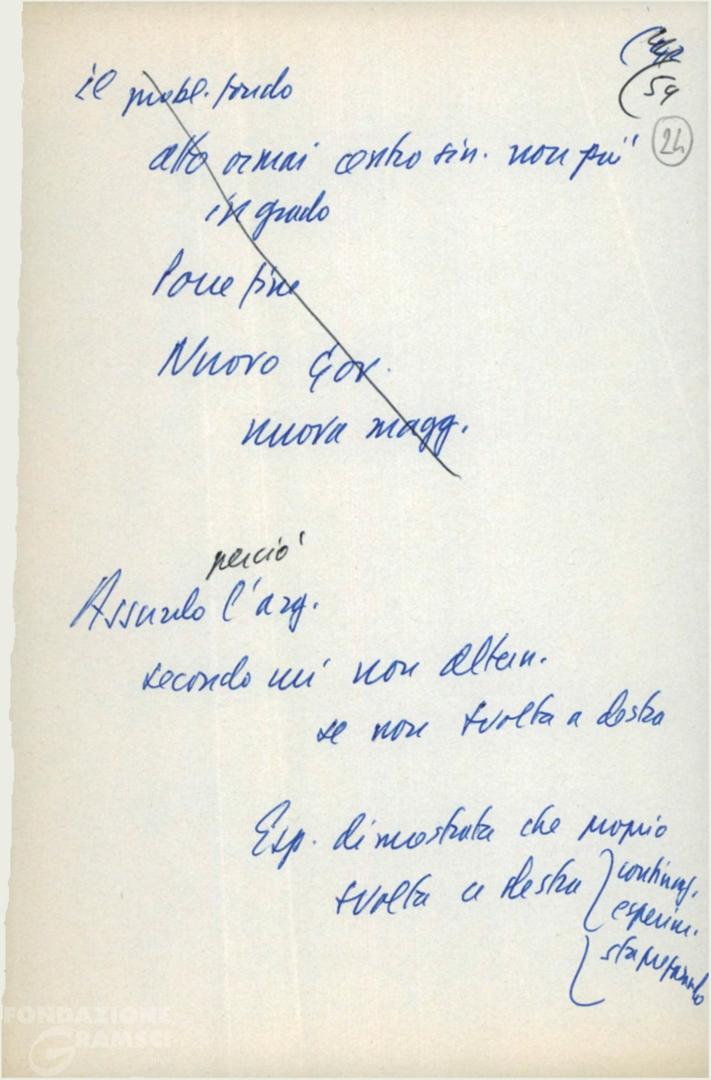 54
24
il probl. fondo
atto ormai centro sin. non più
in grado
Porre fine
Nuovo Gov.
nuova magg.
perciò
Assurdo l'arg.
secondo cui non altern.
se non svolta a destra
Esp. dimostrata che proprio
svolta a destra
continuaz.
esperim.
sta preparando
FONDAZIONE
GRAMSCI